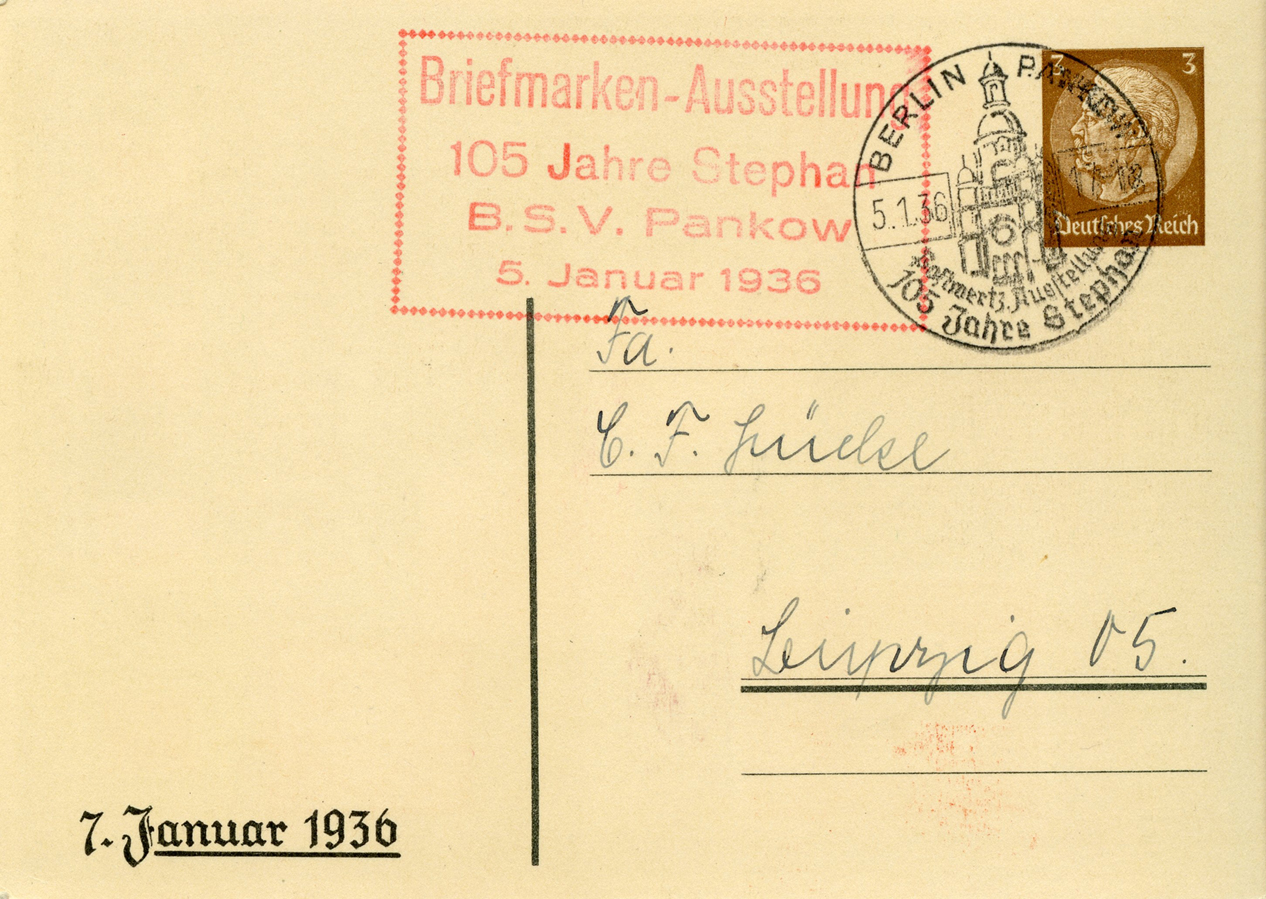 Briefmarken-Ausstellung
105 Jahre Stephan
B.S.V. Pankow
5. Januar 1936
BERLIN PANKOW
5.1.36
Postwertz. Ausstellung
105 Jahre Stephan
3 3
Deutsches Reich
Fa.
C. F. Lücke
Leipzig O5.
7. Januar 1936